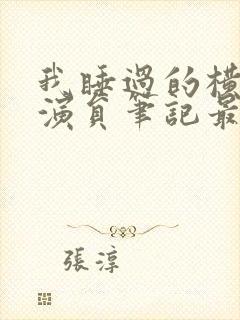 我睡過的橫
演員筆記最
張淳